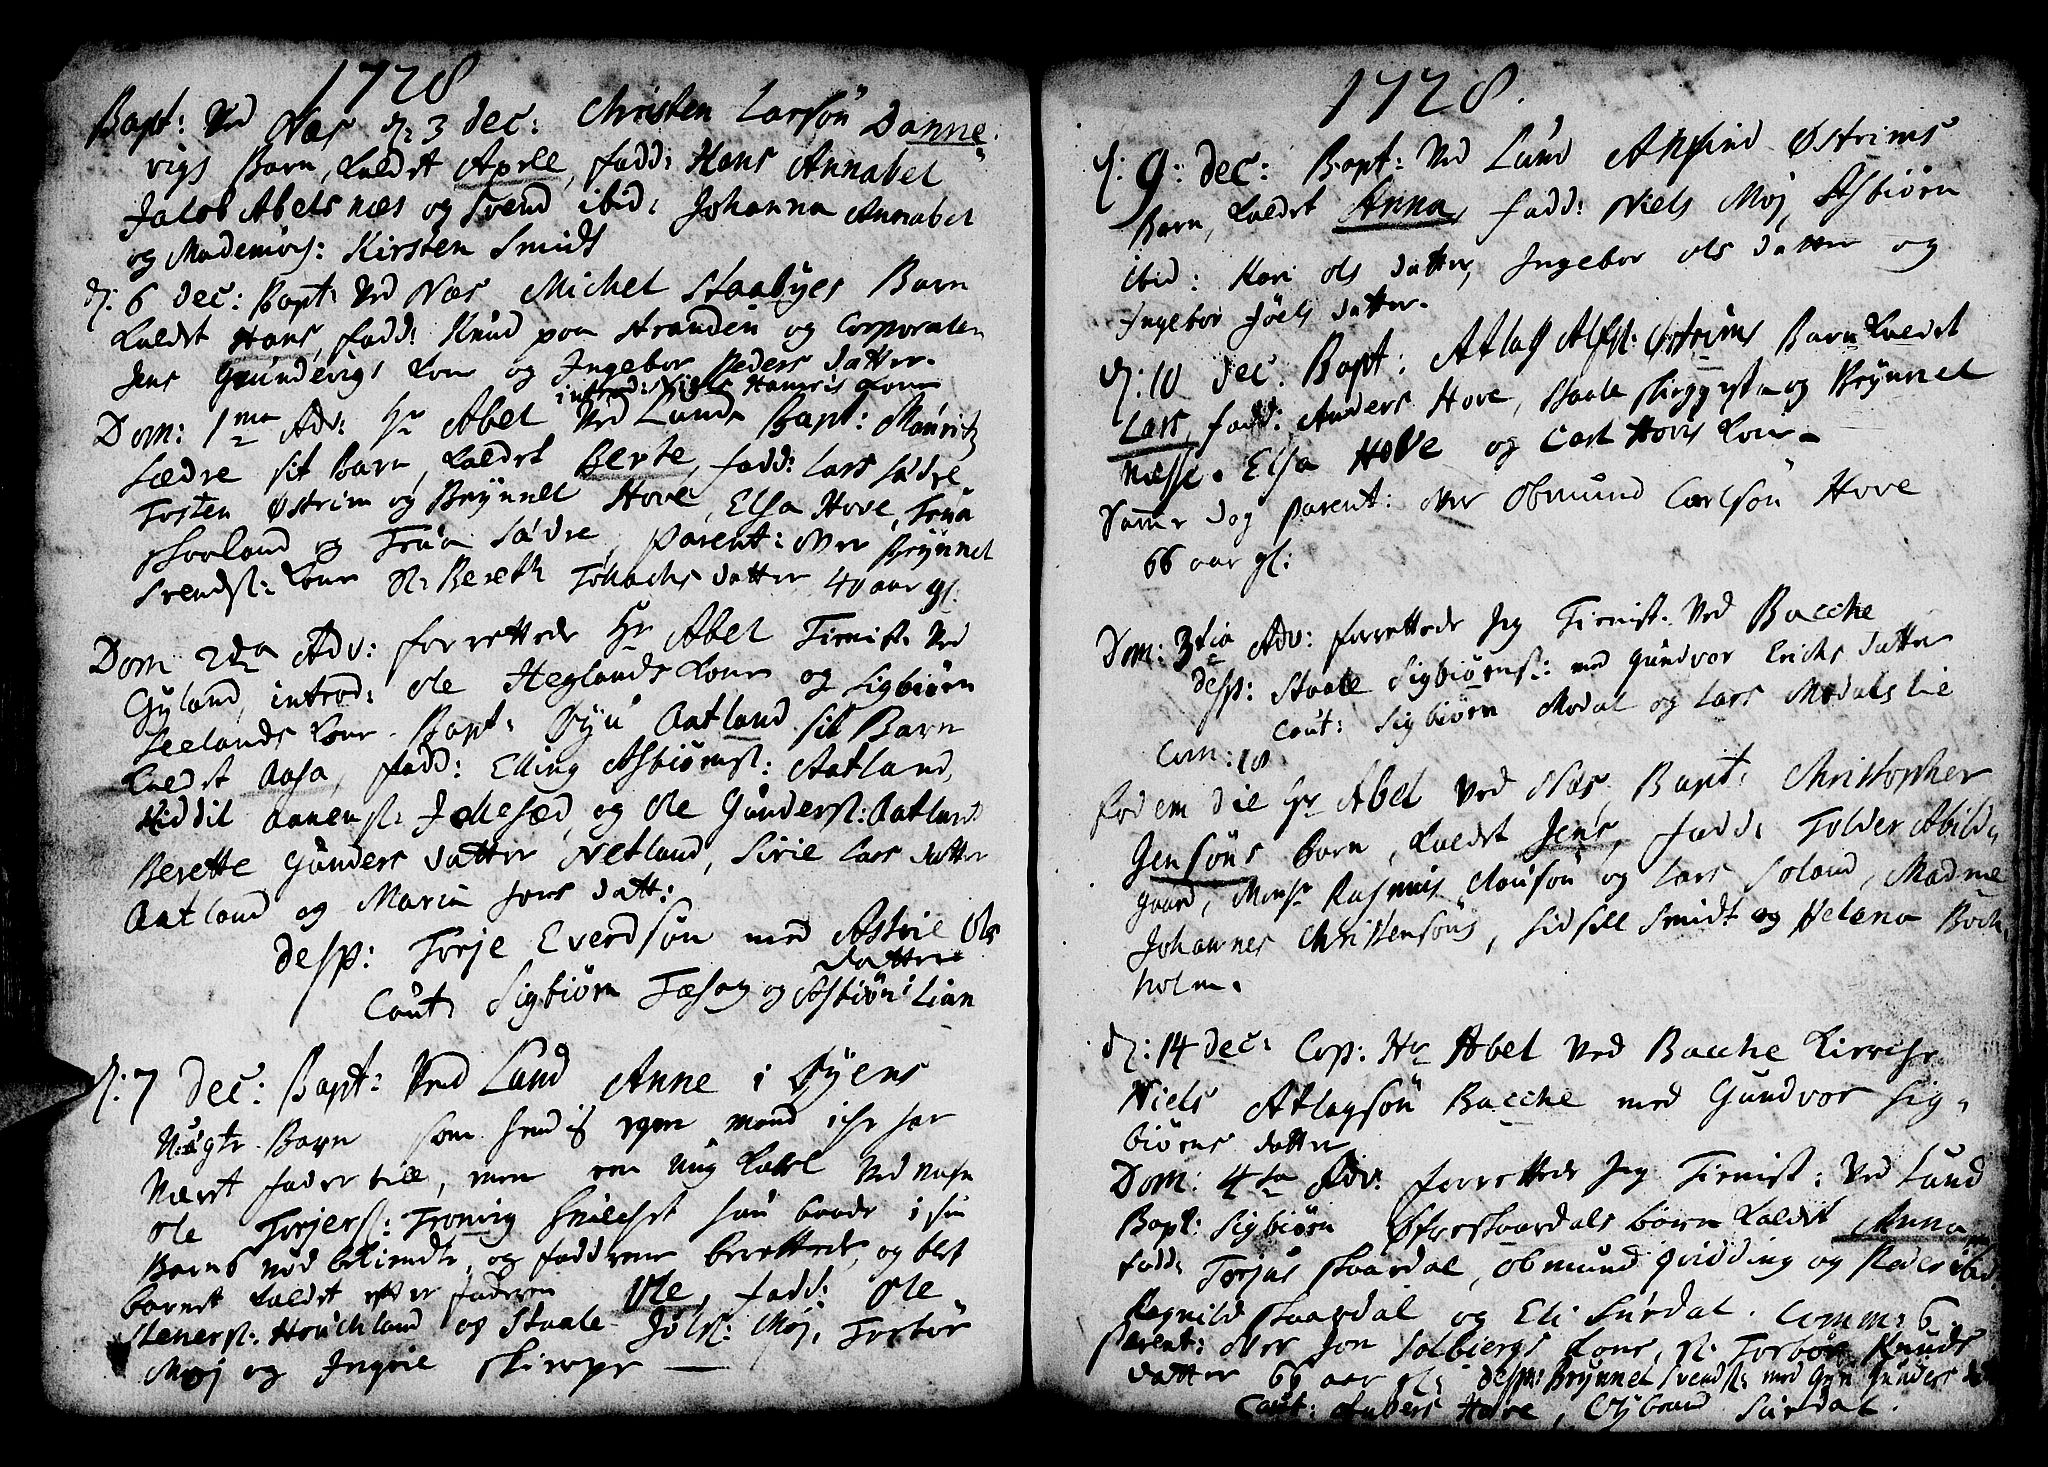 1728
Bapt: Ved Næs d: 3 dec: Christen Larsøn Danne
vigs Barn, kaldet Axele, fadd: Hans Annabel
Jacob Abelsnæs og Svend ibid: Johanna Annabel
og Mademois: Kirsten Smidt
d: 6 dec: Bapt: Ved Næs Michel Staabyes Barn
kaldet Hans, fadd: Knud paa Stranden og Corporalen
Jens Grundevigs kone og Ingebor Peders datter.
introd: Niels Hamris kone
Dom: 1ma Adv: Hr Abel Ved Lund. Bapt: Mauritz
Sædre sit Barn, kaldet Berte, fadd: Lars Sædre
Tosten Østrim og Brynnel Hove, Elsa Hove, Trua
Skorland og Trua Sædre, Parent: over Brynnel
Svends: kone N: Bereth Tollachs datter 40 aar gl.
Dom 2da Adv: forrettede Hr Abel Tienist. Ved
Gyland, introd: Ole Heglands kone og Sigbiørn
Seelands kone. Bapt: Øyu Aatland sit Barn
kaldet Aasa, fadd: Elling Asbiørns: Aatland,
Kiddil Aanens: Jollesæd, og Ole Gunders: Aatland
Berette Gunders datter Netland, Sirie Lars datter
Aatland og Maria Jens datt:
desp: Torje Everdsøn med Astrie Ols
datter
Caut: Sigbiørn Fæsøy og Asbiørn Lian
d: 7 dec: Bapt: Ved Lund Anne i Øyens
Uægte Barn som hendis egen mand icke har
Været fader till, men en ung Karl Ved Navn
Ole Torjers: Tronvig hvilchet hun baade i sin
Barns nød bekiendte, og faddrene berettede, og blef
barnet kaldet efter faderen Ole, fadd: Ole
Steners: Houchland og Staale Jøls: Moj, Torbor
Moj og Ingrie Skierpe —
1728.
d: 9: dec: Bapt: Ved Lund Anfind Østrims
Barn, kaldet Anna, fadd: Niels Moj, Asbiørn
ibid: Kari Ols datter, Ingebor Ols datter og
Ingebor Joels datter.
d: 10 dec: Bapt: Atlag Alfs: Østrims Barn kaldet
Lars, fadd: Anders Hove, Staale og Brynnel
Næsse. Elsa Hove og Carl Hoves kone.
Samme dag Parent: over Obmund Carlsøn Hove
66 aar gl:
Dom: 3tia Adv: forrettede Jeg Tienist. Ved Bacche
desp: Staale Sigbiørns: med Gundvor Erichs datter
Caut: Sigbiørn Modal og Lars Modalslie
Com: 18.
Eodem die Hr Abel Ved Næs. Bapt: Christopher
Jensøns Barn, kaldet Jens, fadd: Tolder Abild,
gaard, Monsr Rasmus Clausøn og Lars Soland, Madme
Johannes Christensøns, Sidsill Smidt og Helena Boch,
holm.
d: 14 dec: Cop: Hr Abel Ved Bacche Kierche
Niels Atlagsøn Bacche med Gundvor Sig,
biørns datter
Dom: 4ta Adv: forrettede Jeg Tienist: Ved Lund
Bapt: Sigbiørn Øfreskaardals børn kaldet Anna
fadd: Torjus Skaardal, Obmund Qvidding og Peder ibid
Ragnild Skaardal og Eli Surdal. Comm: 6.
Parent: over Jon Solbiergs kone, N: Torbor Knuds
datter 66 aar gl: desp: Brynnel Svends: med Gyri Gunders dat
Caut: Anders Hove, Vybrand Surdal.